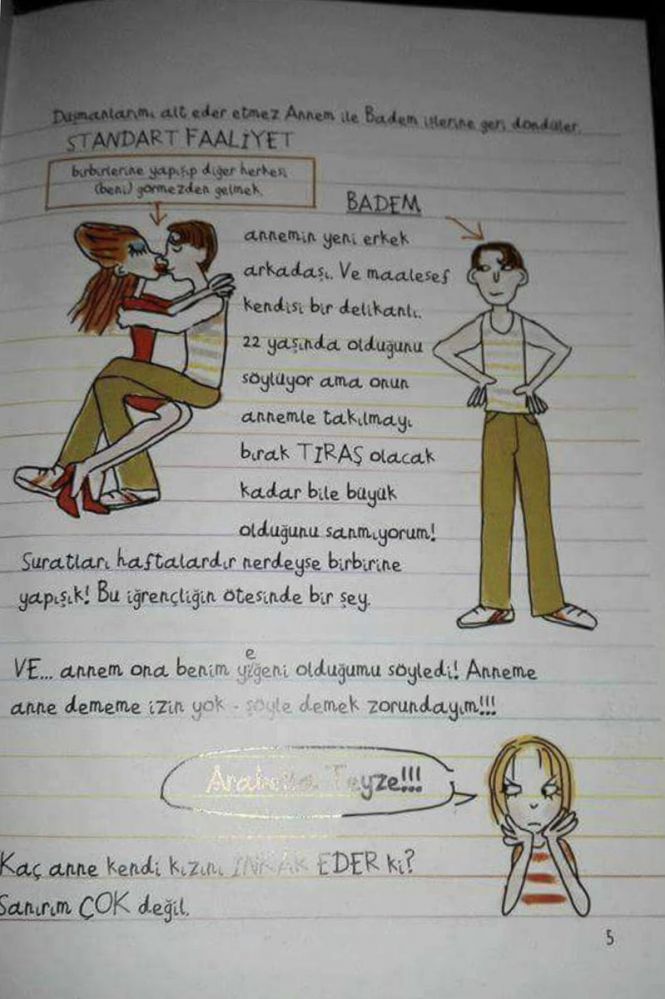 Düşmanlarımı alt eder etmez Annem ile Badem işlerine geri döndüler.
STANDART FAALİYET
birbirlerine yapışıp diğer herkesi
(beni) görmezden gelmek.
BADEM
annemin yeni erkek
arkadaşı. Ve maalesef
kendisi bir delikanlı.
22 yaşında olduğunu
söylüyor ama onun
annemle takılmayı
bırak TIRAŞ olacak
kadar bile büyük
olduğunu sanmıyorum!
Suratları haftalardır nerdeyse birbirine
yapışık! Bu iğrençliğin ötesinde bir şey.
e
VE... annem ona benim yiğeni olduğumu söyledi! Anneme
anne dememe izin yok - şöyle demek zorundayım!!!
Arabella Teyze!!!
Kaç anne kendi kızını İNKAR EDER ki?
Sanırım ÇOK değil.
5